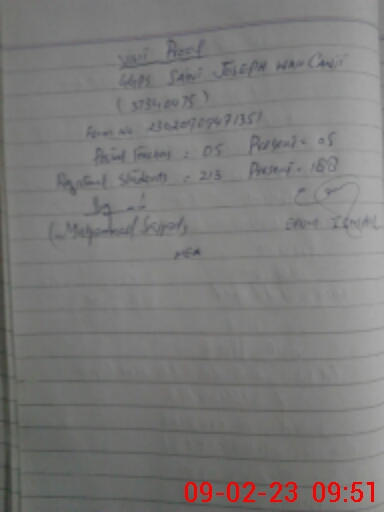 Visit Proof
GGPS SAINT JOSEPH WAH CANTT
(37340475)
Form No 23020907471351
Posted Teachers = 05 Present = 05
Registered Students = 213 Present = 188
(Muhammad
MEA
09-02-23 09:51